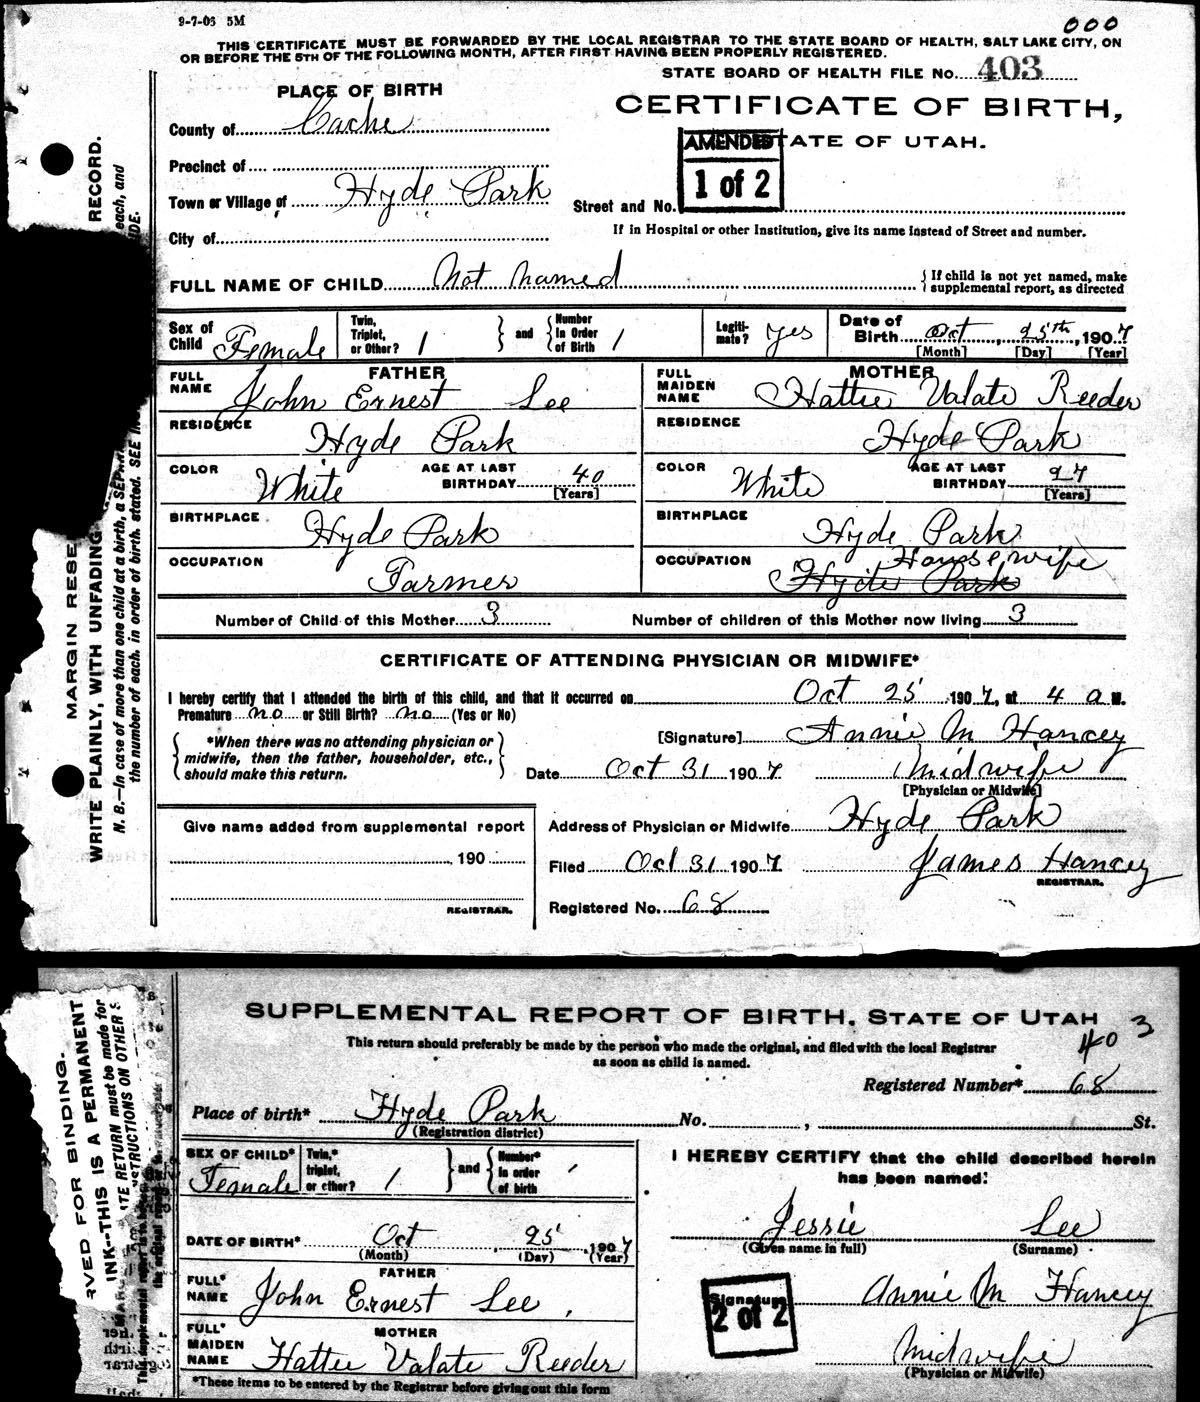 9-7-06 5M
000
THIS CERTIFICATE MUST BE FORWARDED BY THE LOCAL REGISTRAR TO THE STATE BOARD OF HEALTH, SALT LAKE CITY, ON
OR BEFORE THE 5TH OF THE FOLLOWING MONTH, AFTER FIRST HAVING BEEN PROPERLY REGISTERED.
STATE BOARD OF HEALTH FILE No. 403
PLACE OF BIRTH
CERTIFICATE OF BIRTH,
County of Cache
AMENDED
STATE OF UTAH.
1 of 2
Precinct of
Town or Village of Hyde Park
Street and No.
City of
If in Hospital or other Institution, give its name instead of Street and number.
FULL NAME OF CHILD Not named
{ If child is not yet named, make
supplemental report, as directed
Sex of Child Female
Twin, Triplet, or Other? 1
} and {
Number In Order of Birth 1
Legiti-mate? yes
Date of Birth Oct, 25th, 1907
[Month] [Day] [Year]
FATHER
FULL NAME John Ernest Lee
RESIDENCE Hyde Park
COLOR White
AGE AT LAST BIRTHDAY 40
[Years]
BIRTHPLACE Hyde Park
OCCUPATION Farmer
MOTHER
FULL MAIDEN NAME Hattie Valate Reeder
RESIDENCE Hyde Park
COLOR White
AGE AT LAST BIRTHDAY 27
[Years]
BIRTHPLACE Hyde Park
OCCUPATION Housewife
Hyde Park
Number of Child of this Mother 3
Number of children of this Mother now living 3
CERTIFICATE OF ATTENDING PHYSICIAN OR MIDWIFE*
I hereby certify that I attended the birth of this child, and that it occurred on Oct 25, 1907, at 4 a M.
Premature no or Still Birth? no (Yes or No)
*When there was no attending physician or
midwife, then the father, householder, etc.,
should make this return.
[Signature] Annie M Hancey
Date Oct 31 1907
Midwife
[Physician or Midwife]
Give name added from supplemental report
190
REGISTRAR.
Address of Physician or Midwife Hyde Park
Filed Oct 31 1907
James Hancey
REGISTRAR.
Registered No. 68
RECORD.
each, and
MARGIN RESE
WRITE PLAINLY, WITH UNFADING
N. B.—In case of more than one child at a birth, a SEPA
the number of each, in order of birth, stated. SEE IN
SUPPLEMENTAL REPORT OF BIRTH, STATE OF UTAH
This return should preferably be made by the person who made the original, and filed with the local Registrar
as soon as child is named.
403
Registered Number* 68
Place of birth* Hyde Park No. , St.
(Registration district)
SEX OF CHILD* Female
Twin,* triplet, or other? 1
} and {
Number* In order of birth 1
DATE OF BIRTH* Oct 25, 1907
(Month) (Day) (Year)
FATHER
FULL* NAME John Ernest Lee,
MOTHER
FULL* MAIDEN NAME Hattie Valate Reeder
*These items to be entered by the Registrar before giving out this form
I HEREBY CERTIFY that the child described herein
has been named:
Jessie Lee
(Given name in full) (Surname)
Signature
2 of 2
Annie M Hancey
Midwife
(Physician or Midwife)
RVED FOR BINDING.
INK--THIS IS A PERMANENT
TE RETURN must be made for
STRUCTIONS ON OTHER S